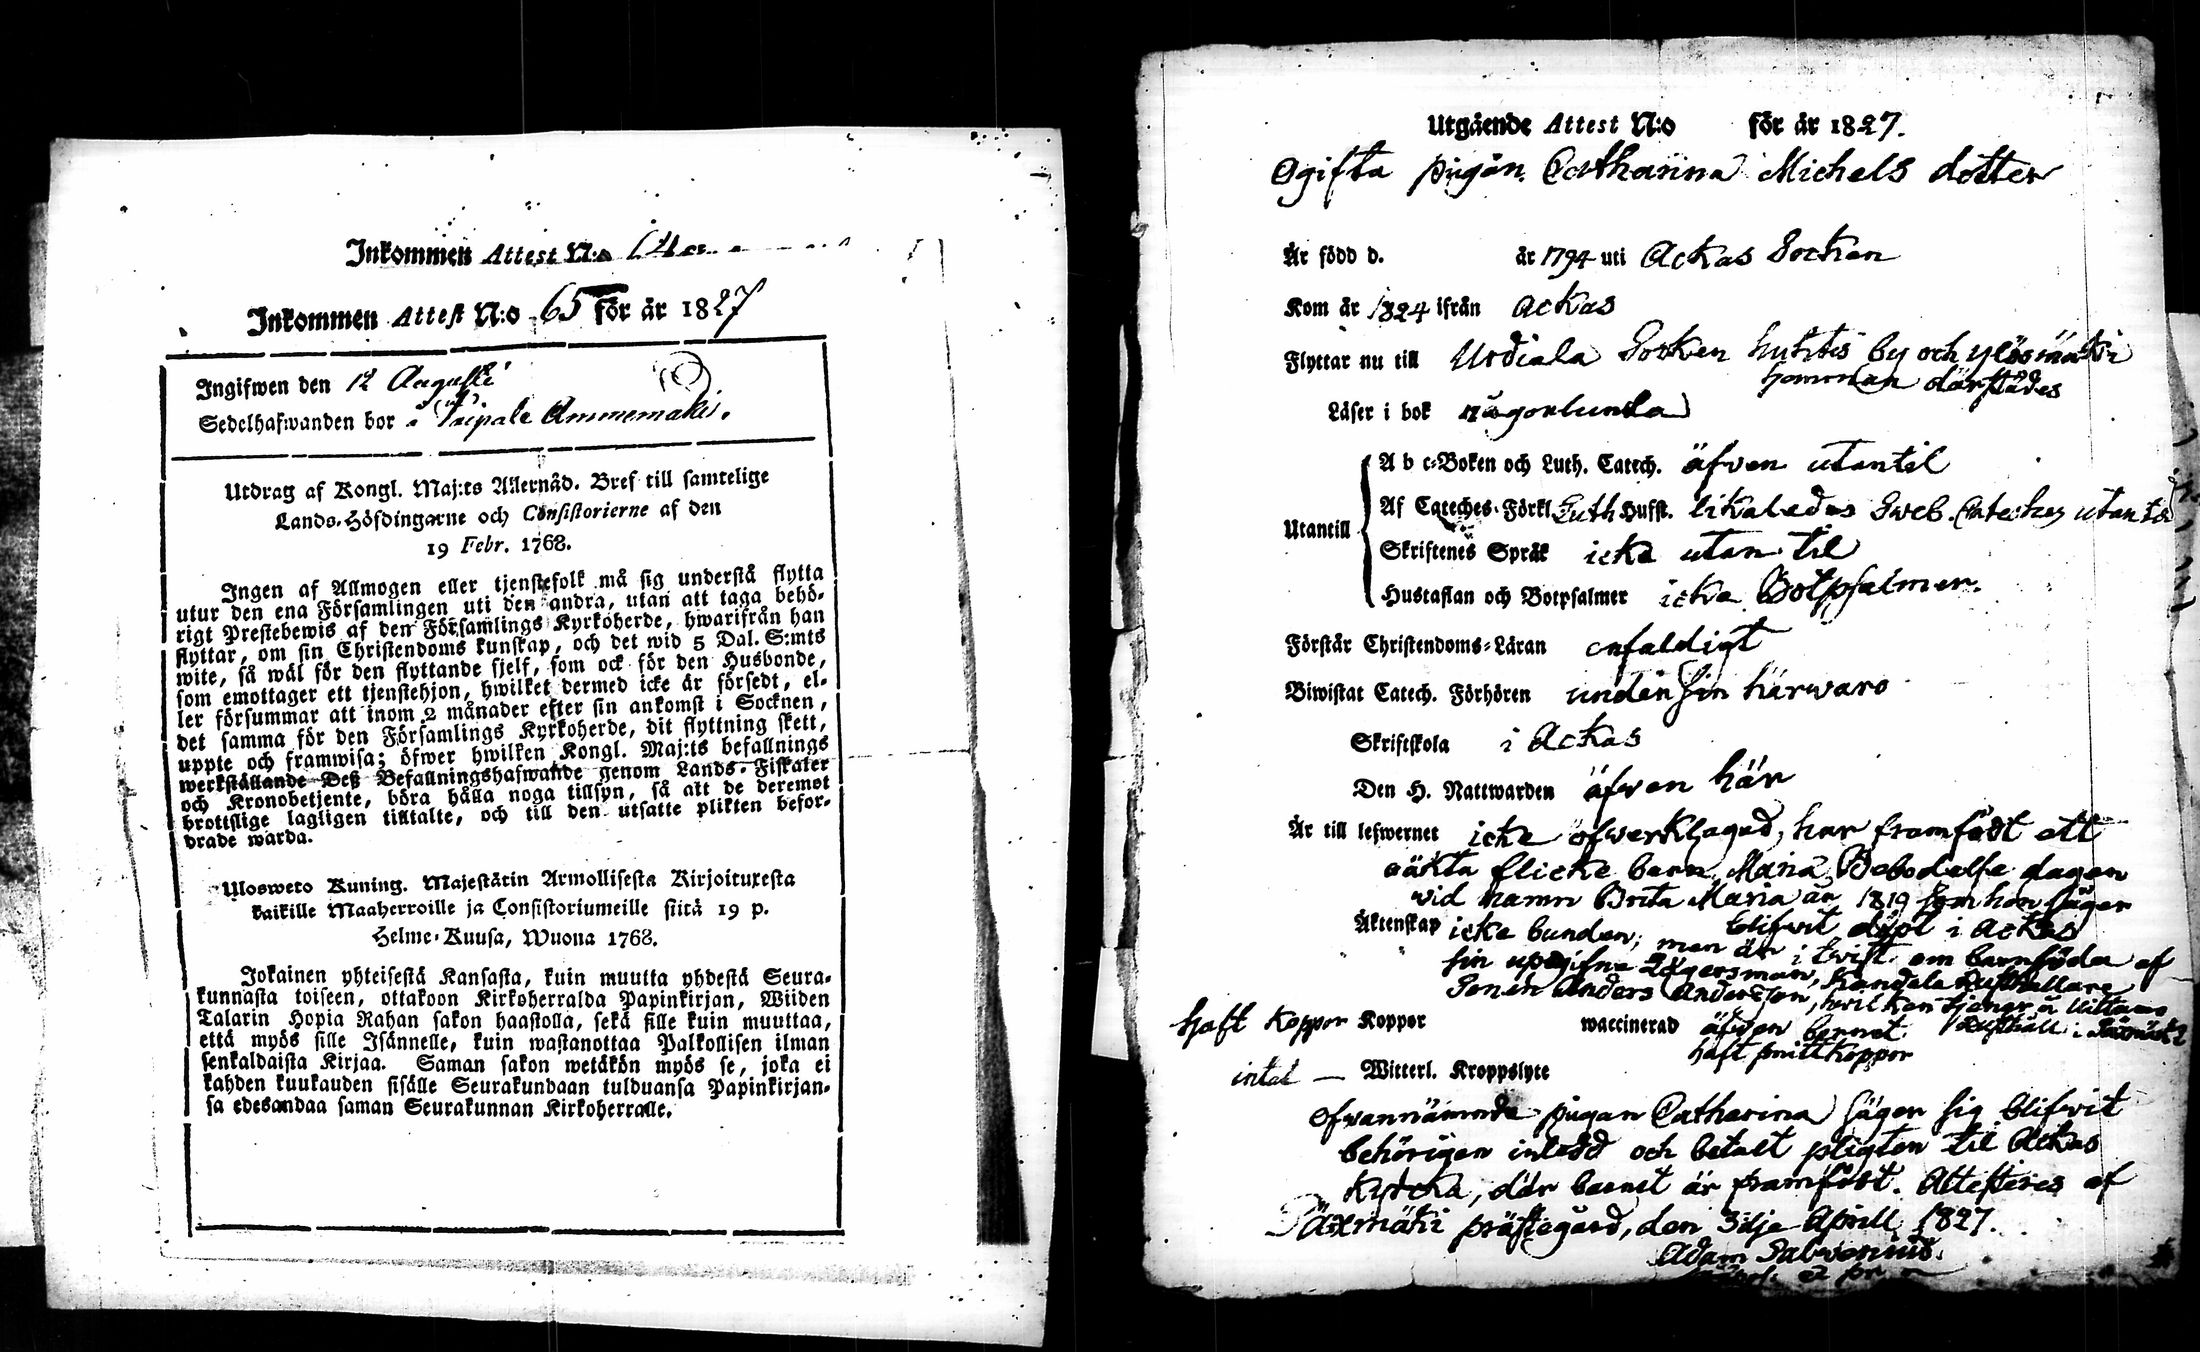 Inkommen Attest N:o 14
Inkommen Attest N:o 65 för år 1827
Ingifwen den 12 Augusti
Sedelhafwanden bor å Pripale Ammemäki.
Utdrag af Kongl. Maj:ts Allernåd. Bref till samtelige
Lands-Höfdingarne och Consistorierne af den
19 Febr. 1768.
Ingen af Allmogen eller tjenstefolk må sig understå flytta
utur den ena Församlingen uti den andra, utan att taga behö-
rigt Prestebewis af den Församlings Kyrkoherde, hwarifrån han
flyttar, om sin Christendoms kunskap, och det wid 5 Dal. S:mts
wite, så wäl för den flyttande sjelf, som ock för den Husbonde,
som emottager ett tjenstehjon, hwilket dermed icke är försedt, el-
ler försummar att inom 2 månader efter sin ankomst i Socknen,
det samma för den Församlings Kyrkoherde, dit flyttning skett,
uppte och framwisa; öfwer hwilken Kongl. Maj:ts befallnings
werkställande Deß Befallningshafwande genom Lands-Fiskaler
och Kronobetjente, böra hålla noga tillsyn, så att de deremot
brottslige lagligen tilltalte, och till den utsatte plikten befor-
drade warda.
Ulosweto Kuning. Majestätin Armollisesta Kirjoituxesta
kaikille Maaherroille ja Consistoriumeille siitä 19 p.
Helme-Kuusa, Wuona 1768.
Jokainen yhteisestä Kansasta, kuin muutta yhdestä Seura-
kunnasta toiseen, ottakoon Kirkoherralda Papinkirjan, Wiiden
Talarin Hopia Rahan sakon haastolla, sekä sille kuin muuttaa,
että myös sille Isännelle, kuin wastanottaa Palkollisen ilman
senkaldaista Kirjaa. Saman sakon wetäkön myös se, joka ei
kahden kuukauden sisälle Seurakundaan tulduansa Papinkirjan-
sa edesandaa saman Seurakunnan Kirkoherralle.
Utgående Attest N:o för år 1827.
Ogifta pigan Catharina Michels dotter
Är född d. år 1794 uti Ackas Socken
Kom år 1824 ifrån Ackas
Flyttar nu till Urdiala Socken huhtis by och ylösmäki
hemman därstädes
Läser i bok någorlunda
Utantill
A b c-Boken och Luth. Catech. äfven utantil
Af Cateches-Förkl. Luth Husst. likaledes Sweb. Cateches utantil
Skriftenes Språk icke utan til
Hustaflan och Botpsalmer icke Botpsalmer.
Förstår Christendoms-Läran enfaldigt
Biwistat Catech. Förhören under sin härwaro
Skriftskola i Ackas
Den H. Nattwarden äfven här
Är till lefwernet icke öfwerklagad, har framfödt ett
oäkta flicke barn, Maria Bebodelse dagen
vid namn Brita Maria år 1819 som hon säger
blifvit döpt i Ackas
Äktenskap icke bunden; men är i twist om barnföda af
sin upgifne lägersman, Handela Rusthållare
Sonen Anders Andersson, hvilken tjenar å Uittamo
Rusthåll i
haft Koppor Koppor waccinerad äfven barnet
haft smittkoppor
intet — Witterl. Kroppslyte
Ofvannämnde pigan Catharina säger sig blifvit
behörigen inledd och betalt pligten til Ackas
Kyrcka, där barnet är framfödt. Attesteres af
Sääxmäki prästegård, den 3dje April 1827.
Adam Salvenius.